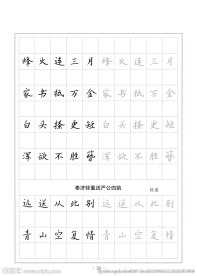 烽火连三月烽火连三月
家书抵万金家书抵万金
白头搔更短白头搔更短
浑欲不胜簪浑欲不胜簪
奉济驿重送严公四韵 杜甫
远送从此别远送从此别
青山空复情青山空复情